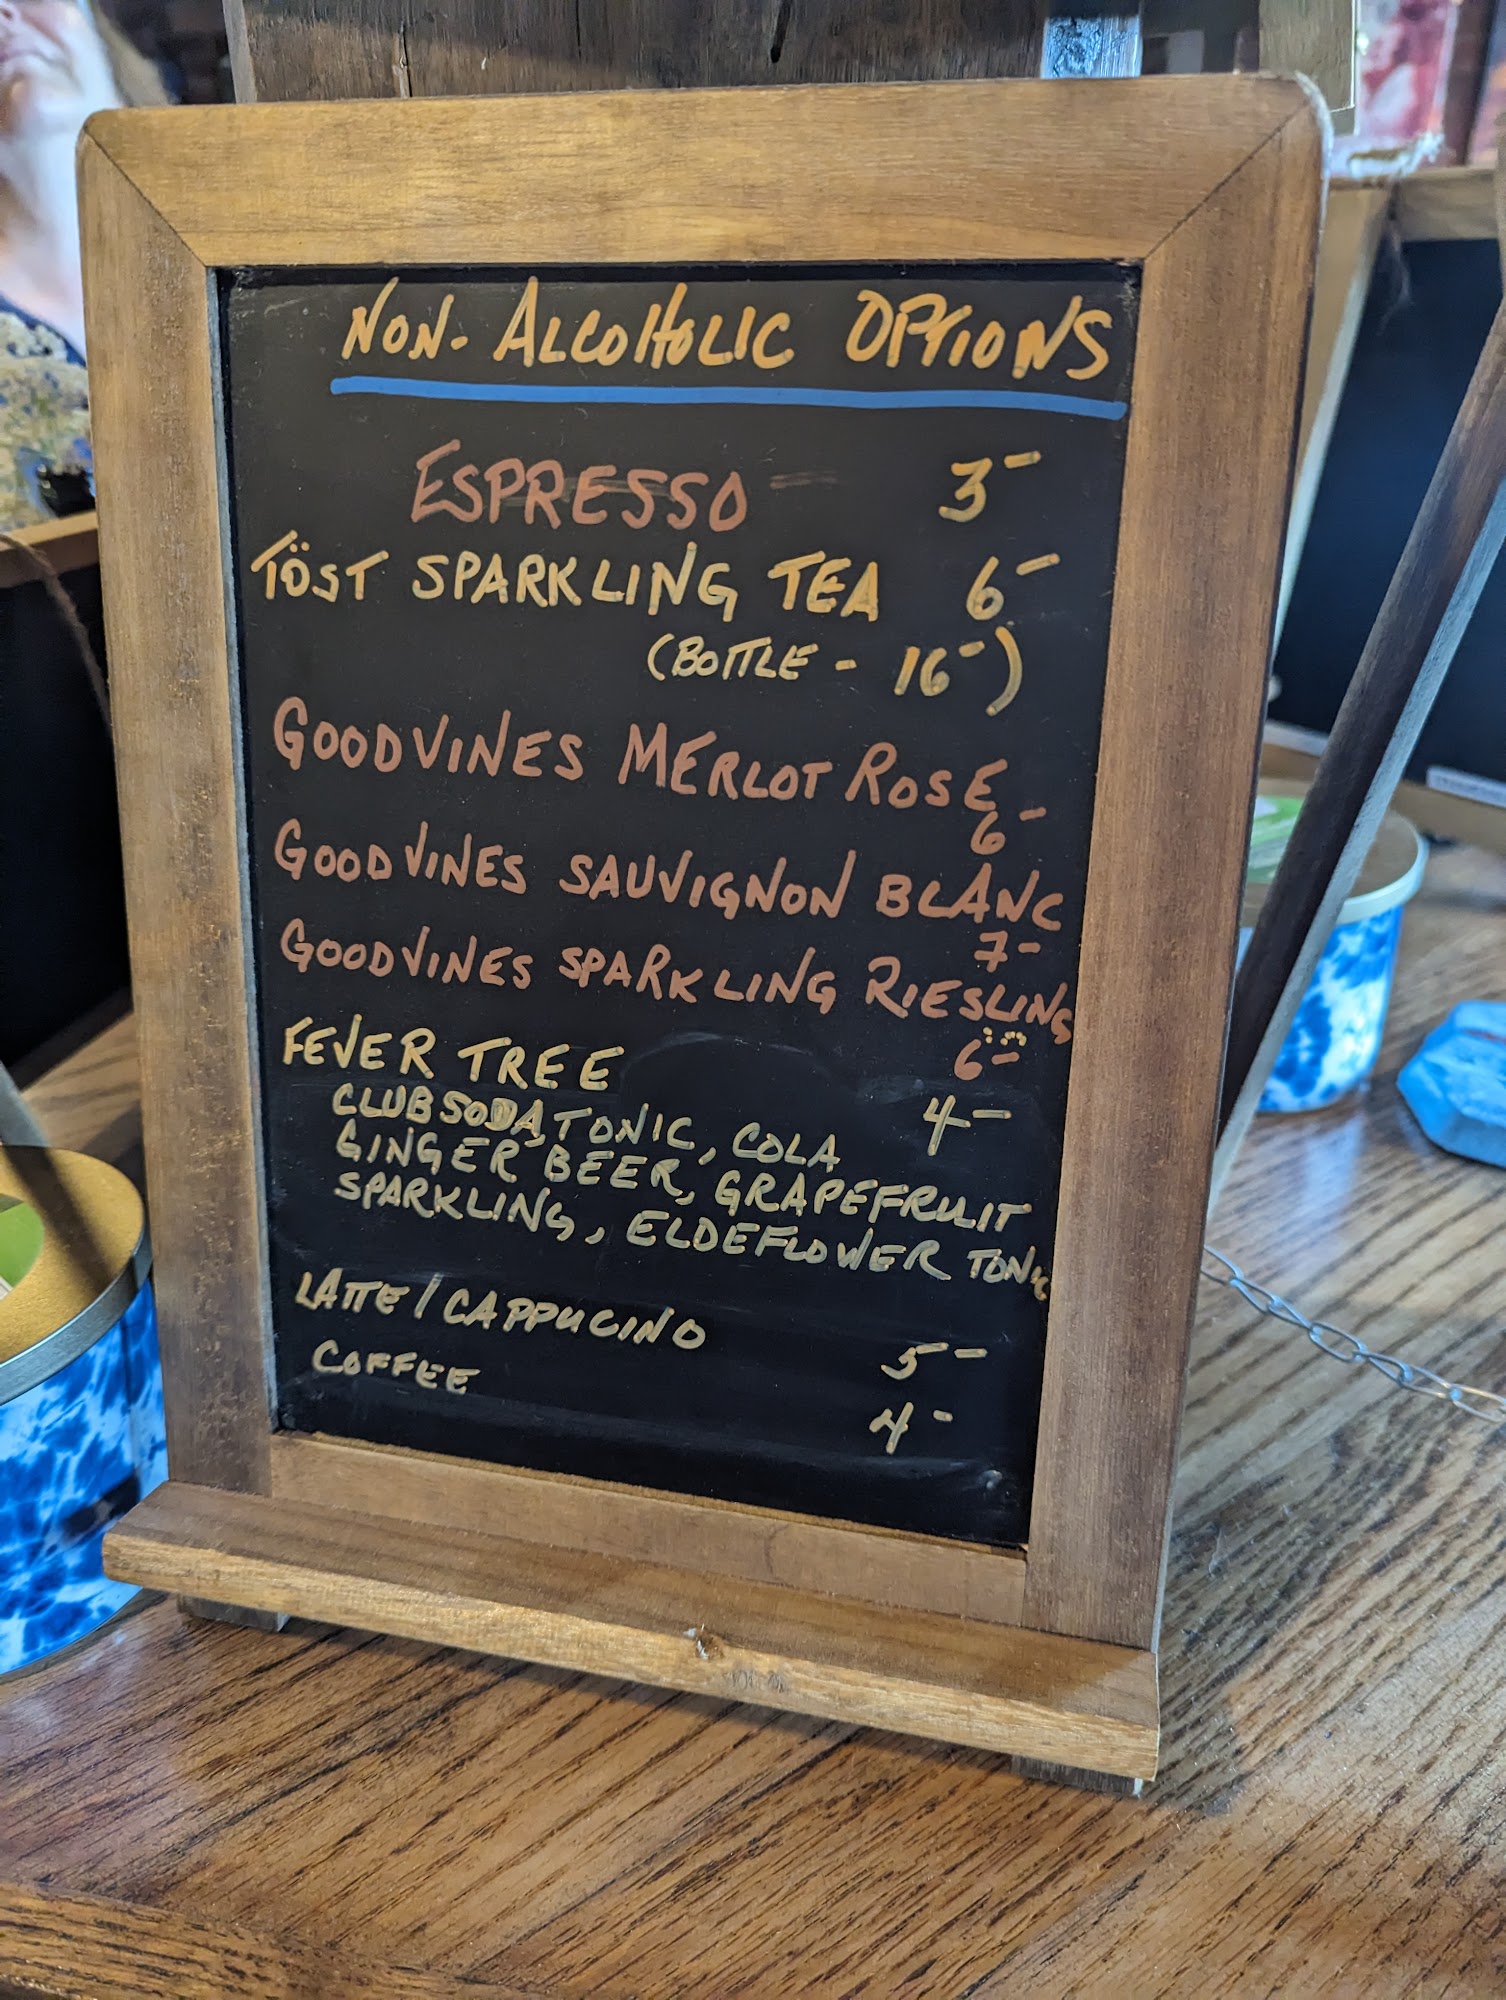 NON-ALCOHOLIC OPTIONS
ESPRESSO 3-
TÖST SPARKLING TEA 6-
(BOTTLE - 16-)
GOODVINES MERLOT ROSE
6-
GOODVINES SAUVIGNON BLANC
7-
GOODVINES SPARKLING RIESLING
6-
FEVER TREE 4-
CLUB SODA, TONIC, COLA
GINGER BEER, GRAPEFRUIT
SPARKLING, ELDEFLOWER TONIC
LATTE/CAPPUCINO 5-
COFFEE 4-